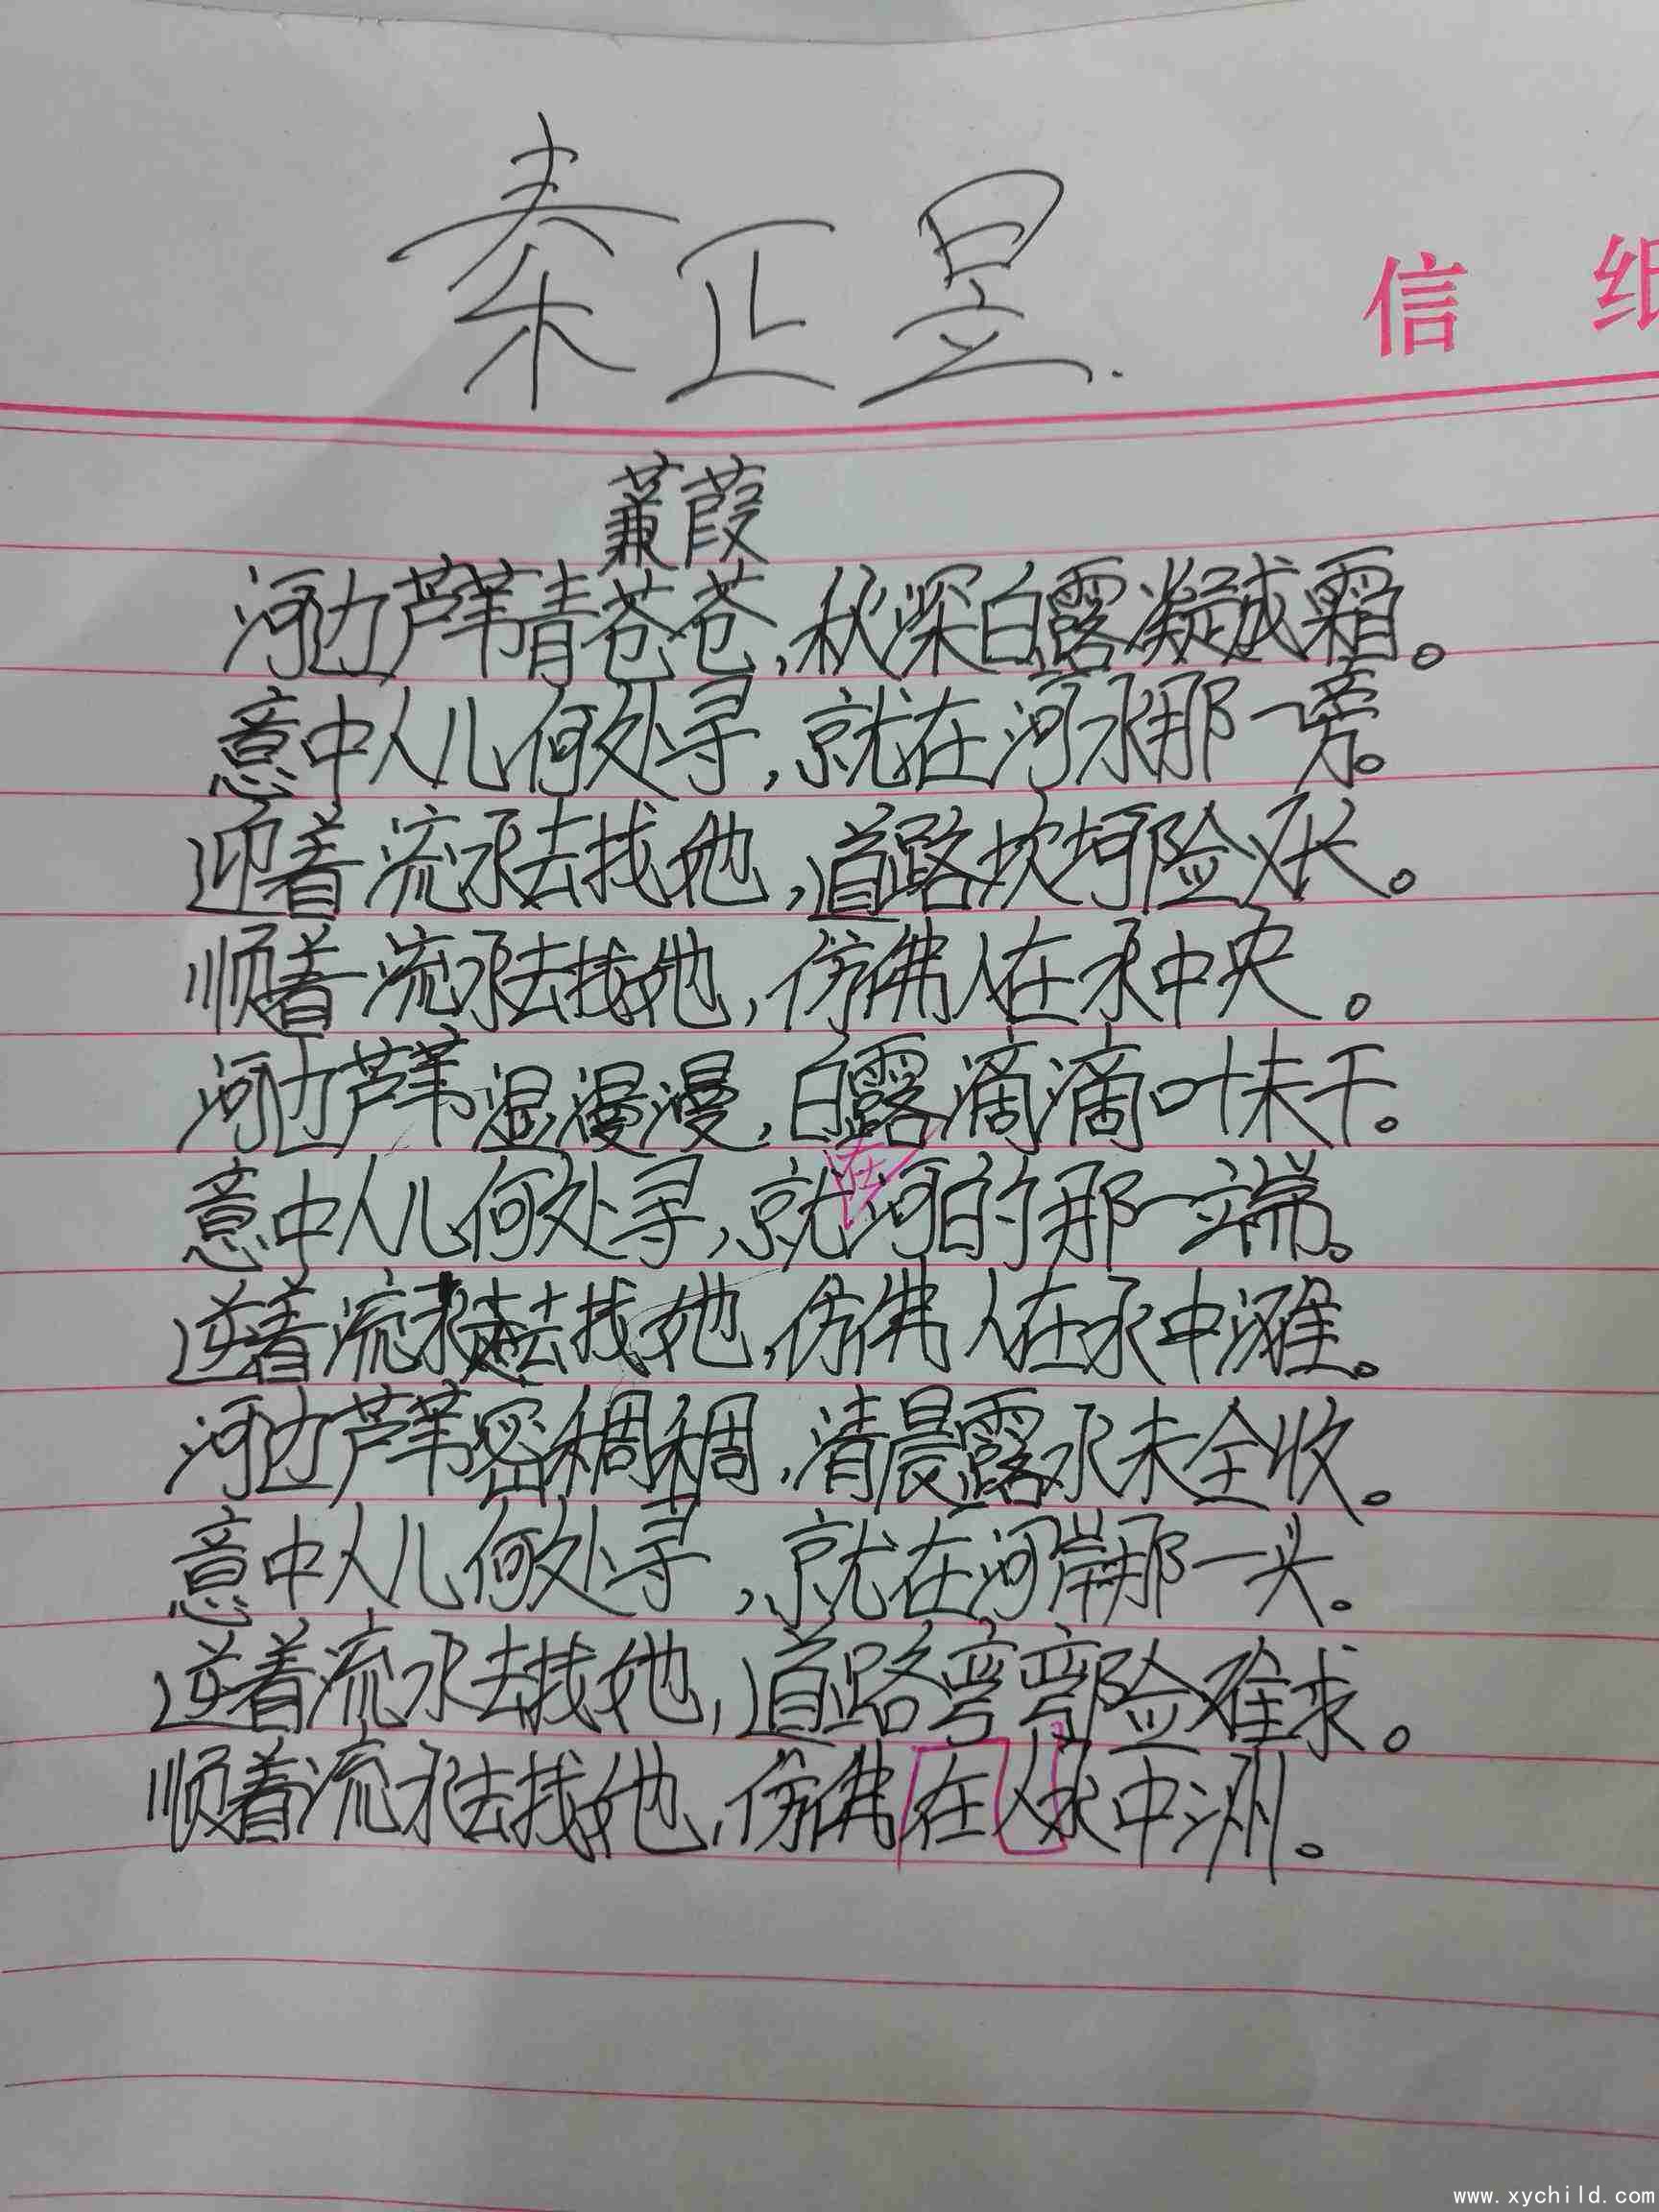 秦正昱.
信 纸
蒹葭
河边芦苇青苍苍,秋深白露凝成霜。
意中人儿何处寻,就在河水那一旁。
迎着流水去找她,道路坎坷险又长。
顺着流水去找她,仿佛人在水中央。
河边芦苇湿漫漫,白露滴滴叶未干。
意中人儿何处寻,就在河的那一端。
逆着流水去找她,仿佛人在水中滩。
河边芦苇密稠稠,清晨露水未全收。
意中人儿何处寻,就在河岸那一头。
逆着流水去找她,道路弯弯险难求。
顺着流水去找她,仿佛在人水中洲。
www.xychild.com